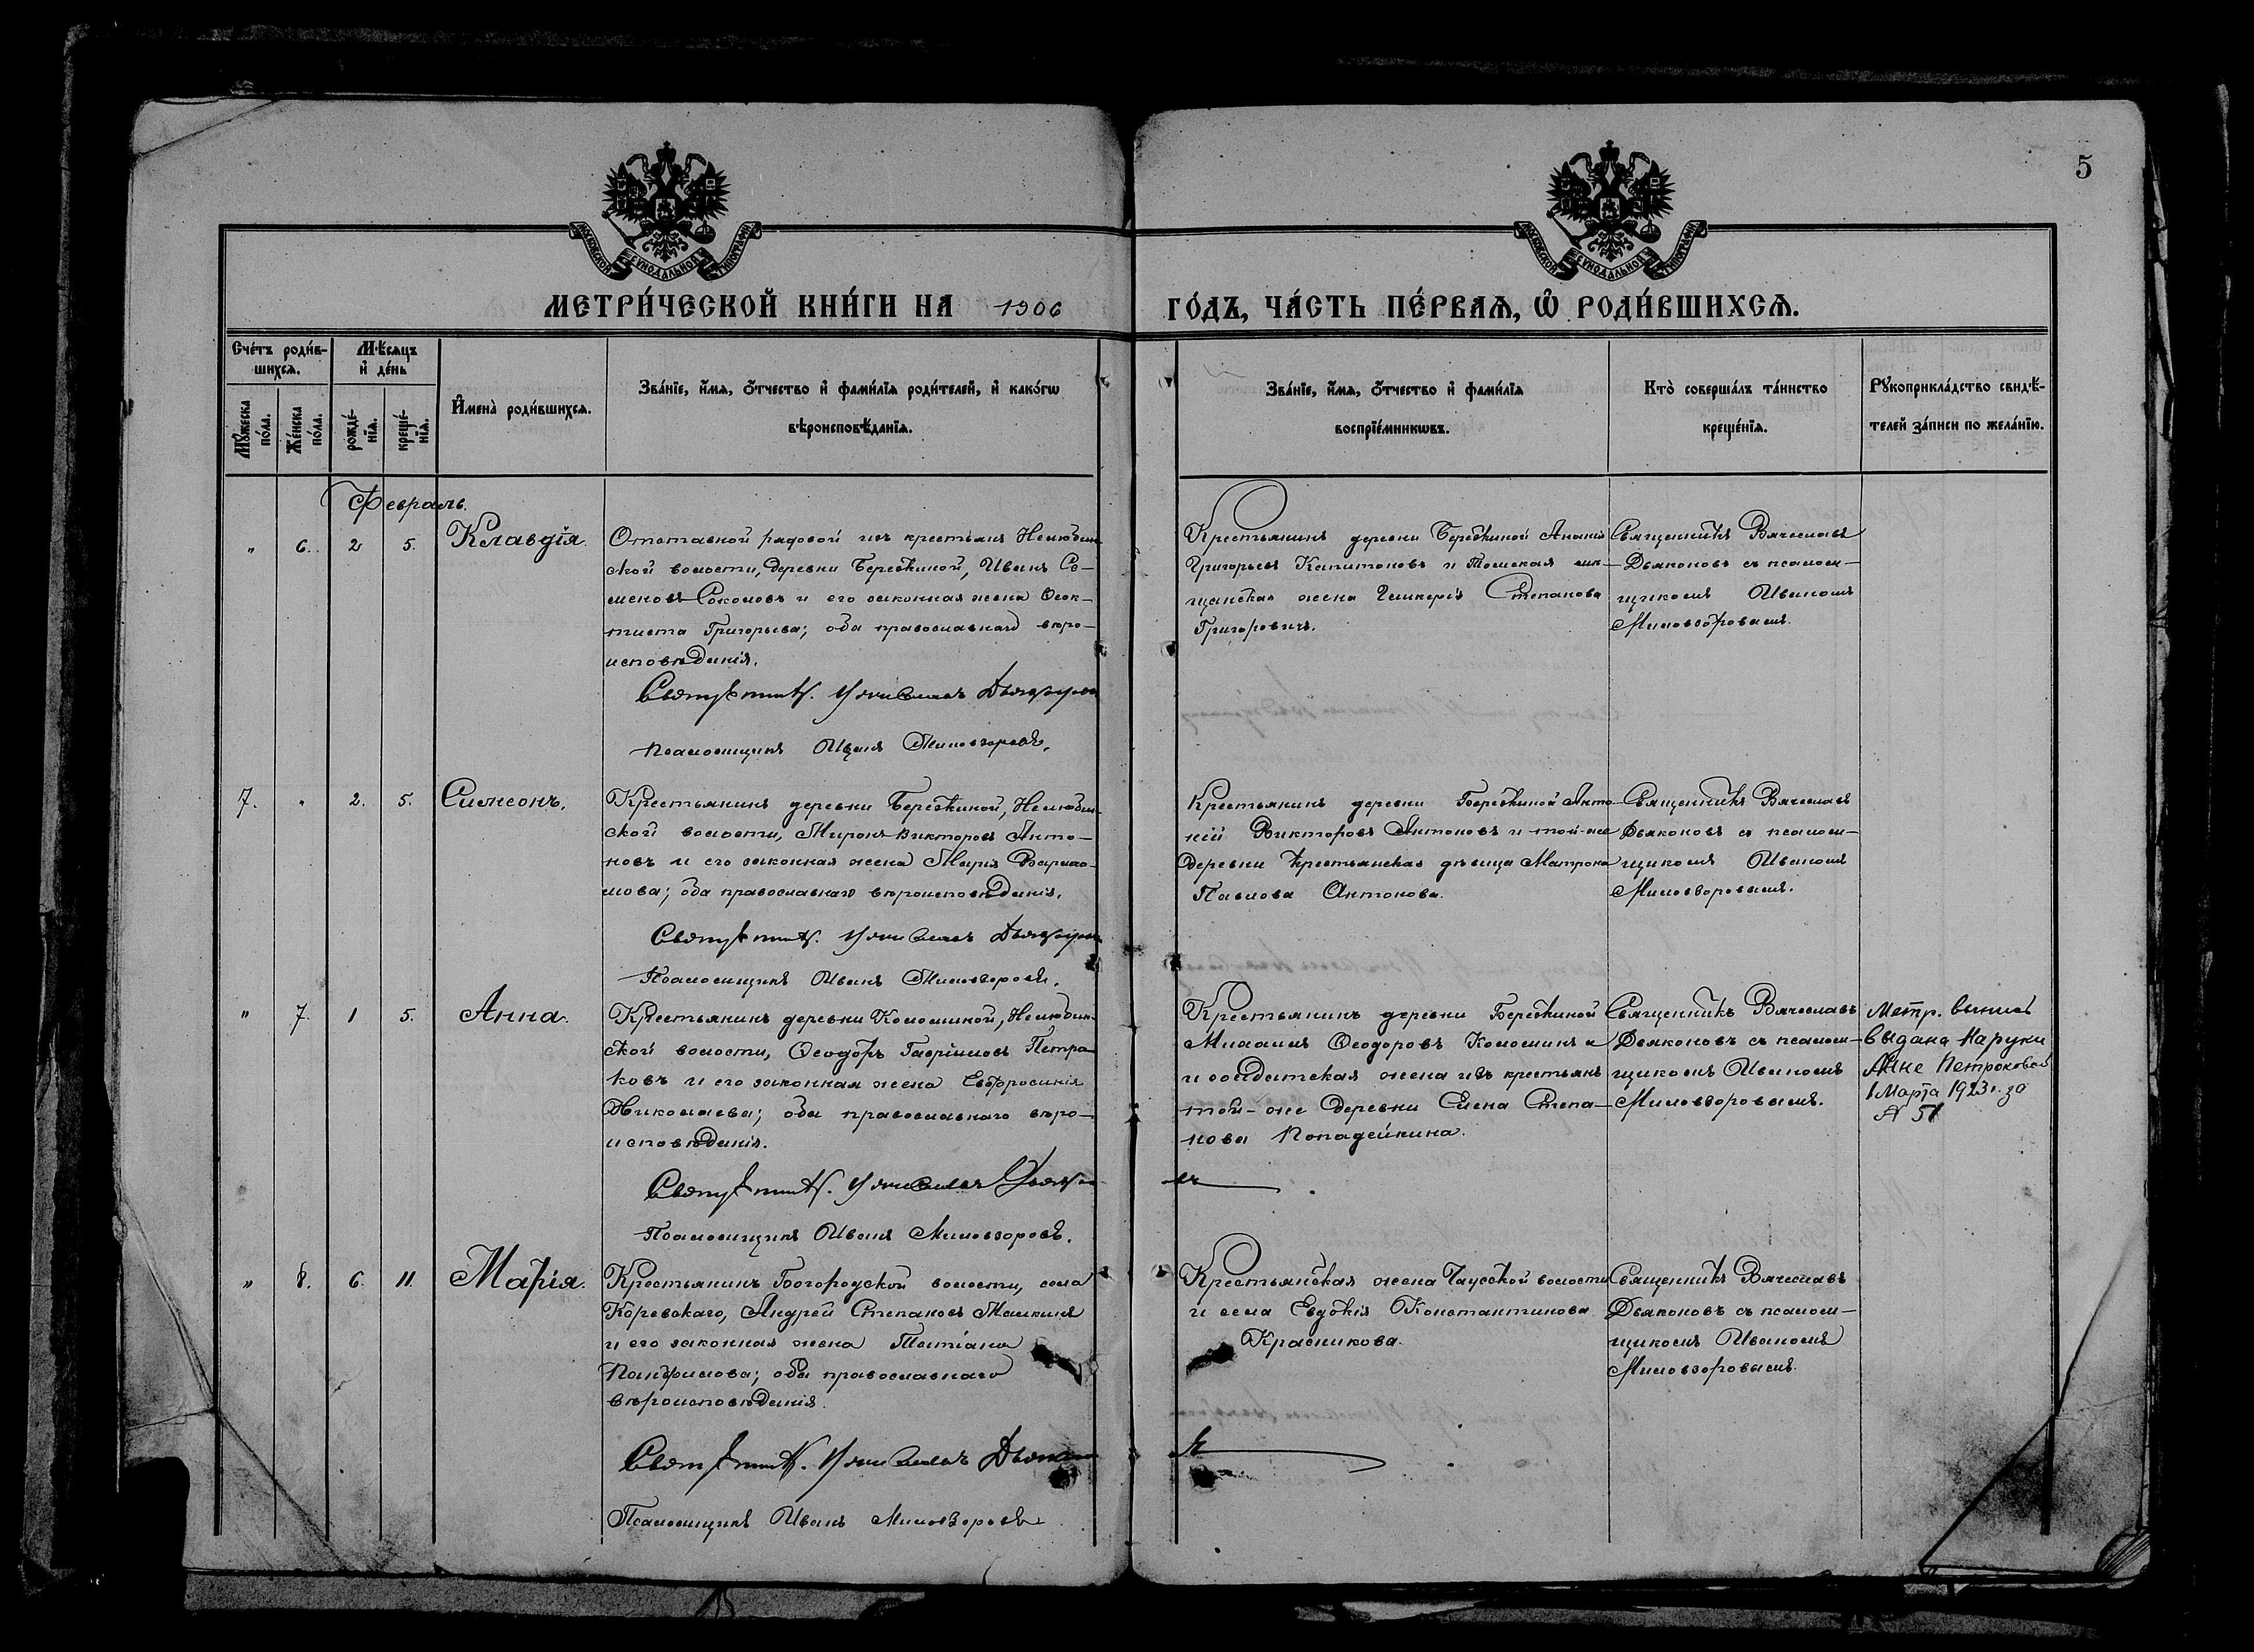 5
МОСКОВСКОЙ СѴНОДАЛЬНОЙ ТИПОГРАФІИ
МОСКОВСКОЙ СѴНОДАЛЬНОЙ ТИПОГРАФІИ
МЕТРИ́ЧЕСКОЙ КНИ́ГИ НА 1906
ГО́ДЪ, ЧА́СТЬ ПЕ́РВАѦ, Ѡ҆ РОДИ́ВШИХСѦ.
Сче́тъ роди́в-
шихсѧ.
Мꙋ́жеска по́ла.
Же́нска по́ла.
Мѣ́сѧцъ
и҆ де́нь
рожде́-
нїѧ.
креще́-
нїѧ.
И҆мена̀ роди́вшихсѧ.
Зва́нїе, и҆́мѧ, ѻ҆́тчество и҆ фами́лїѧ роди́телей, и҆ како́гѡ
вѣроисповѣ́данїѧ.
Зва́нїе, и҆́мѧ, ѻ҆́тчество и҆ фами́лїѧ
воспрїе́мникѡвъ.
Кто̀ соверша́лъ та́инство
креще́нїѧ.
Рꙋкоприкла́дство свидѣ́-
телей за́писи по жела́нїю.
Февраль.
" 6. 2 5. Клавдія.
Отставной рядовой изъ крестьянъ Нелюбин-
ской волости, деревни Березкиной, Иванъ Се-
меновъ Соколовъ и его законная жена Ѳеок-
тиста Григорьева; оба православнаго вѣро-
исповѣданія.
Священникъ Вячеславъ Дьяконовъ
Псаломщикъ Иванъ Миловзоровъ.
Крестьянинъ деревни Березкиной Ананій
Григорьевъ Капитоновъ и Томская мѣ-
щанская жена Гликерія Степанова
Григоровичъ.
Священникъ Вячеславъ
Дьяконовъ съ псалом-
щикомъ Иваномъ
Миловзоровымъ.
7. " 2. 5. Симеонъ.
Крестьянинъ деревни Березкиной, Нелюбин-
ской волости, Миронъ Викторовъ Анто-
новъ и его законная жена Марія Варлаа-
мова; оба православнаго вѣроисповѣданія.
Священникъ Вячеславъ Дьяконовъ
Псаломщикъ Иванъ Миловзоровъ.
Крестьянинъ деревни Березкиной Анто-
ній Викторовъ Антоновъ и той-же
деревни крестьянская дѣвица Матрона
Павлова Антонова.
Священникъ Вячеславъ
Дьяконовъ съ псалом-
щикомъ Иваномъ
Миловзоровымъ.
" 7. 1 5. Анна.
Крестьянинъ деревни Коломиной, Нелюбин-
ской волости, Ѳеодоръ Гавріиловъ Петра-
ковъ и его законная жена Евфросинія
Николаева; оба православнаго вѣро-
исповѣданія.
Священникъ Вячеславъ Дьяконо-
въ
Псаломщикъ Иванъ Миловзоровъ.
Крестьянинъ деревни Березкиной
Михаилъ Ѳеодоровъ Коломинъ и
и солдатская жена изъ крестьянъ
той-же деревни Елена Степа-
нова Попадейкина.
Священникъ Вячеславъ
Дьяконовъ съ псалом-
щикомъ Иваномъ
Миловзоровымъ.
Метр. выпись
выдана на руки
Анне Петроковой
1 Марта 1923 г. за
№ 51
" 8. 6. 11. Марія.
Крестьянинъ Богородской волости, села
Андрей Степановъ Машкинъ
и его законная жена Татіана
Панфилова; оба православнаго
вѣроисповѣданія.
Священникъ Вячеславъ Дьяконо-
въ
Псаломщикъ Иванъ Миловзоровъ
Крестьянская жена Чаусской волости
и села Евдокія Константинова
Красикова.
Священникъ Вячеславъ
Дьяконовъ съ псалом-
щикомъ Иваномъ
Миловзоровымъ.